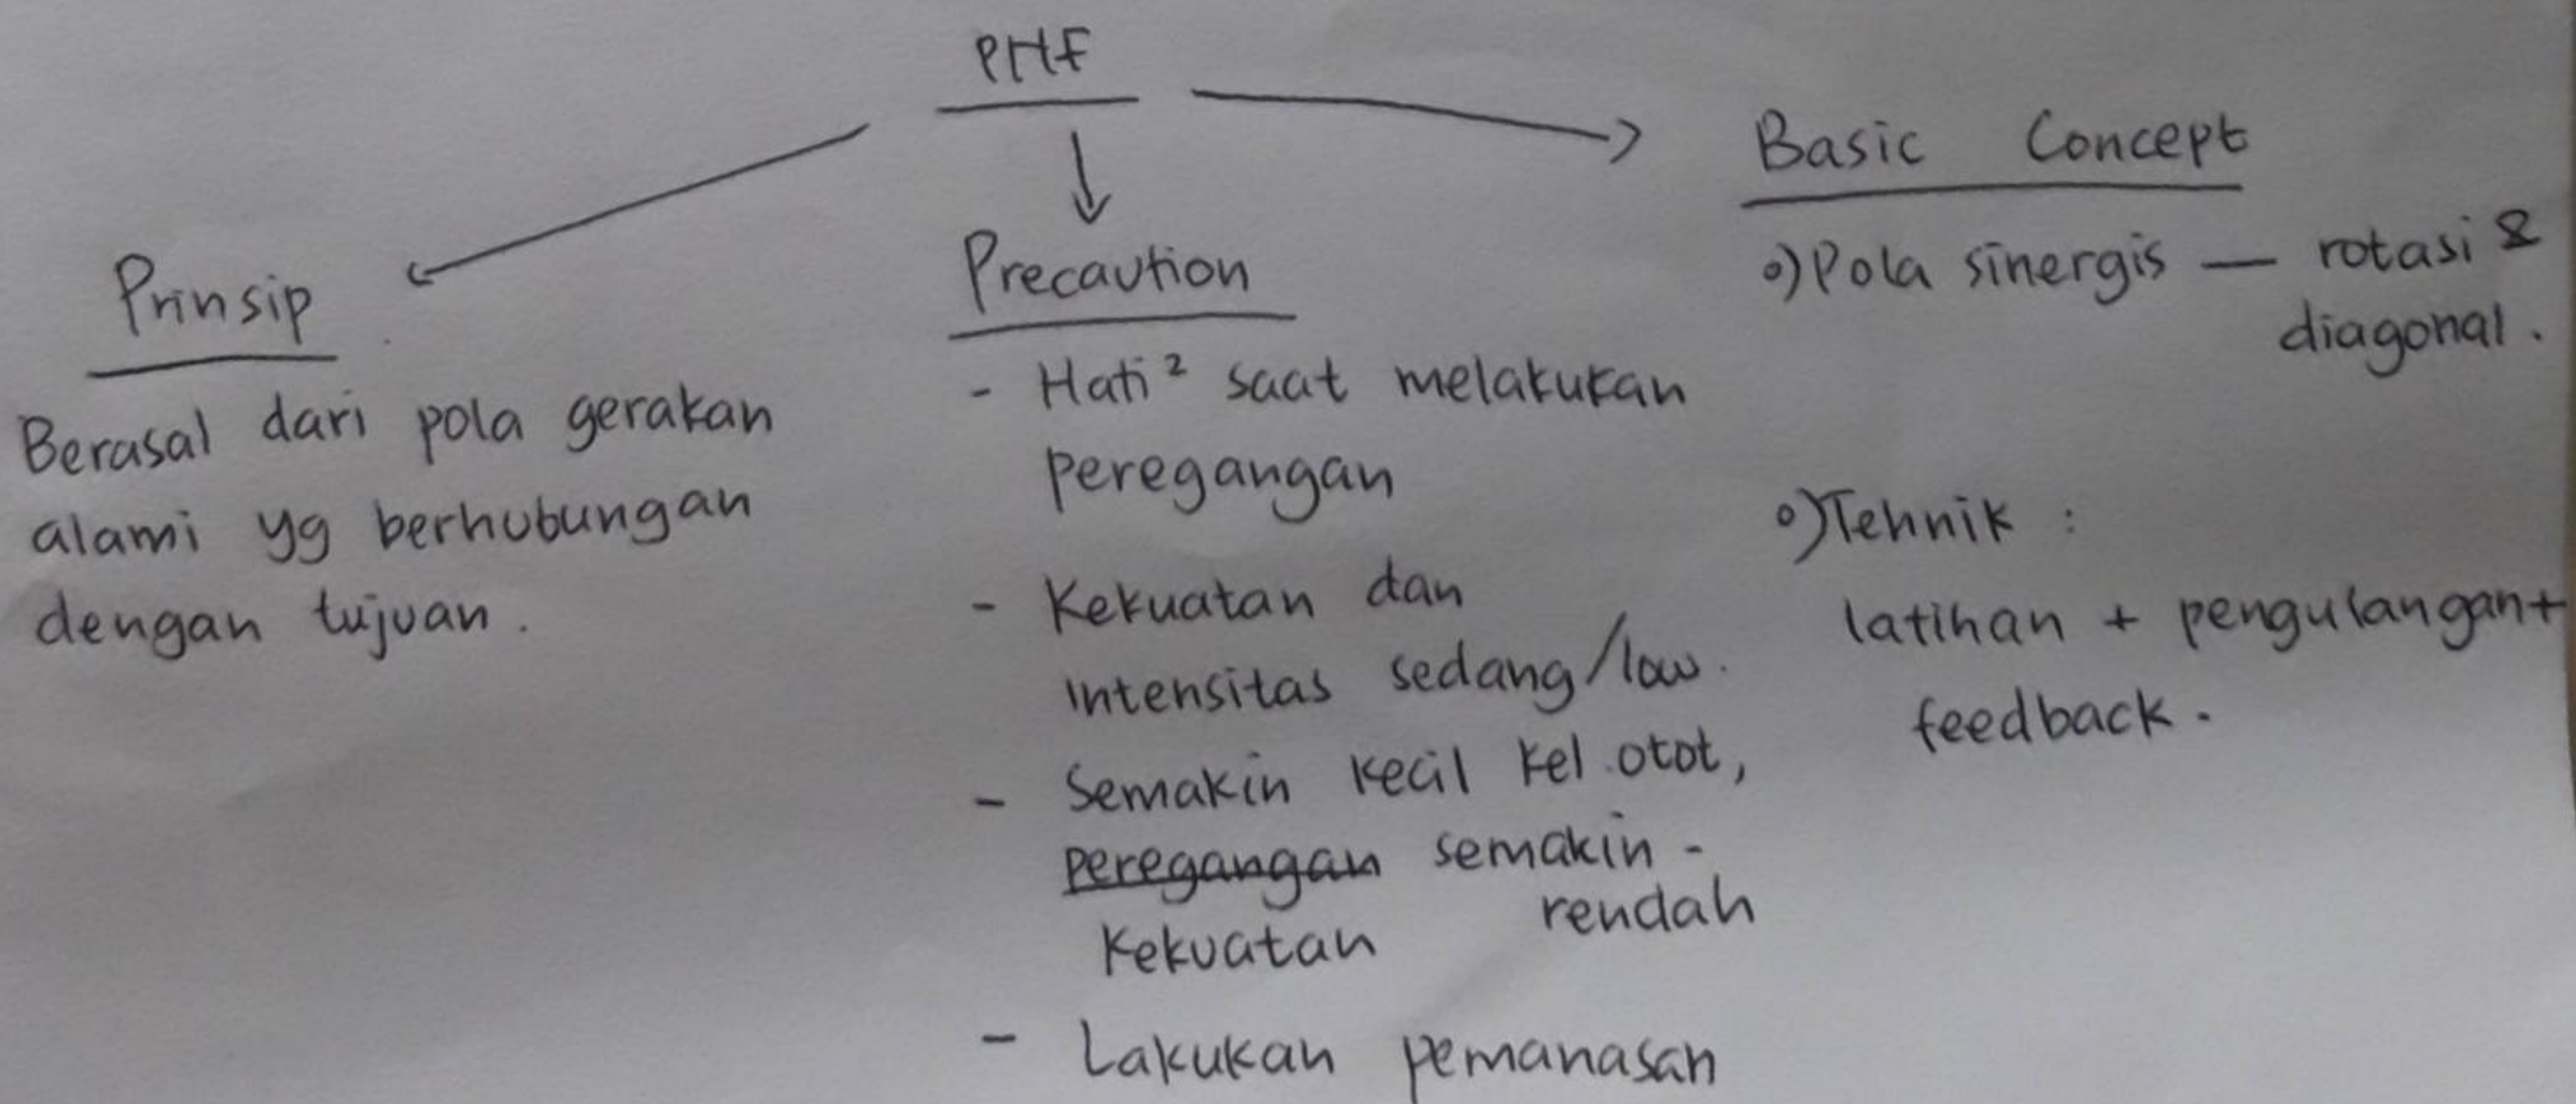 PHF
Prinsip
Berasal dari pola gerakan
alami yg berhubungan
dengan tujuan.
Precaution
- Hati² saat melakukan
peregangan
- Kekuatan dan
intensitas sedang/low.
- Semakin kecil kel otot,
peregangan semakin -
rendah
kekuatan
- Lakukan pemanasan
Basic Concept
o) Pola sinergis — rotasi &
diagonal.
o) Tehnik :
latihan + pengulangan +
feedback.